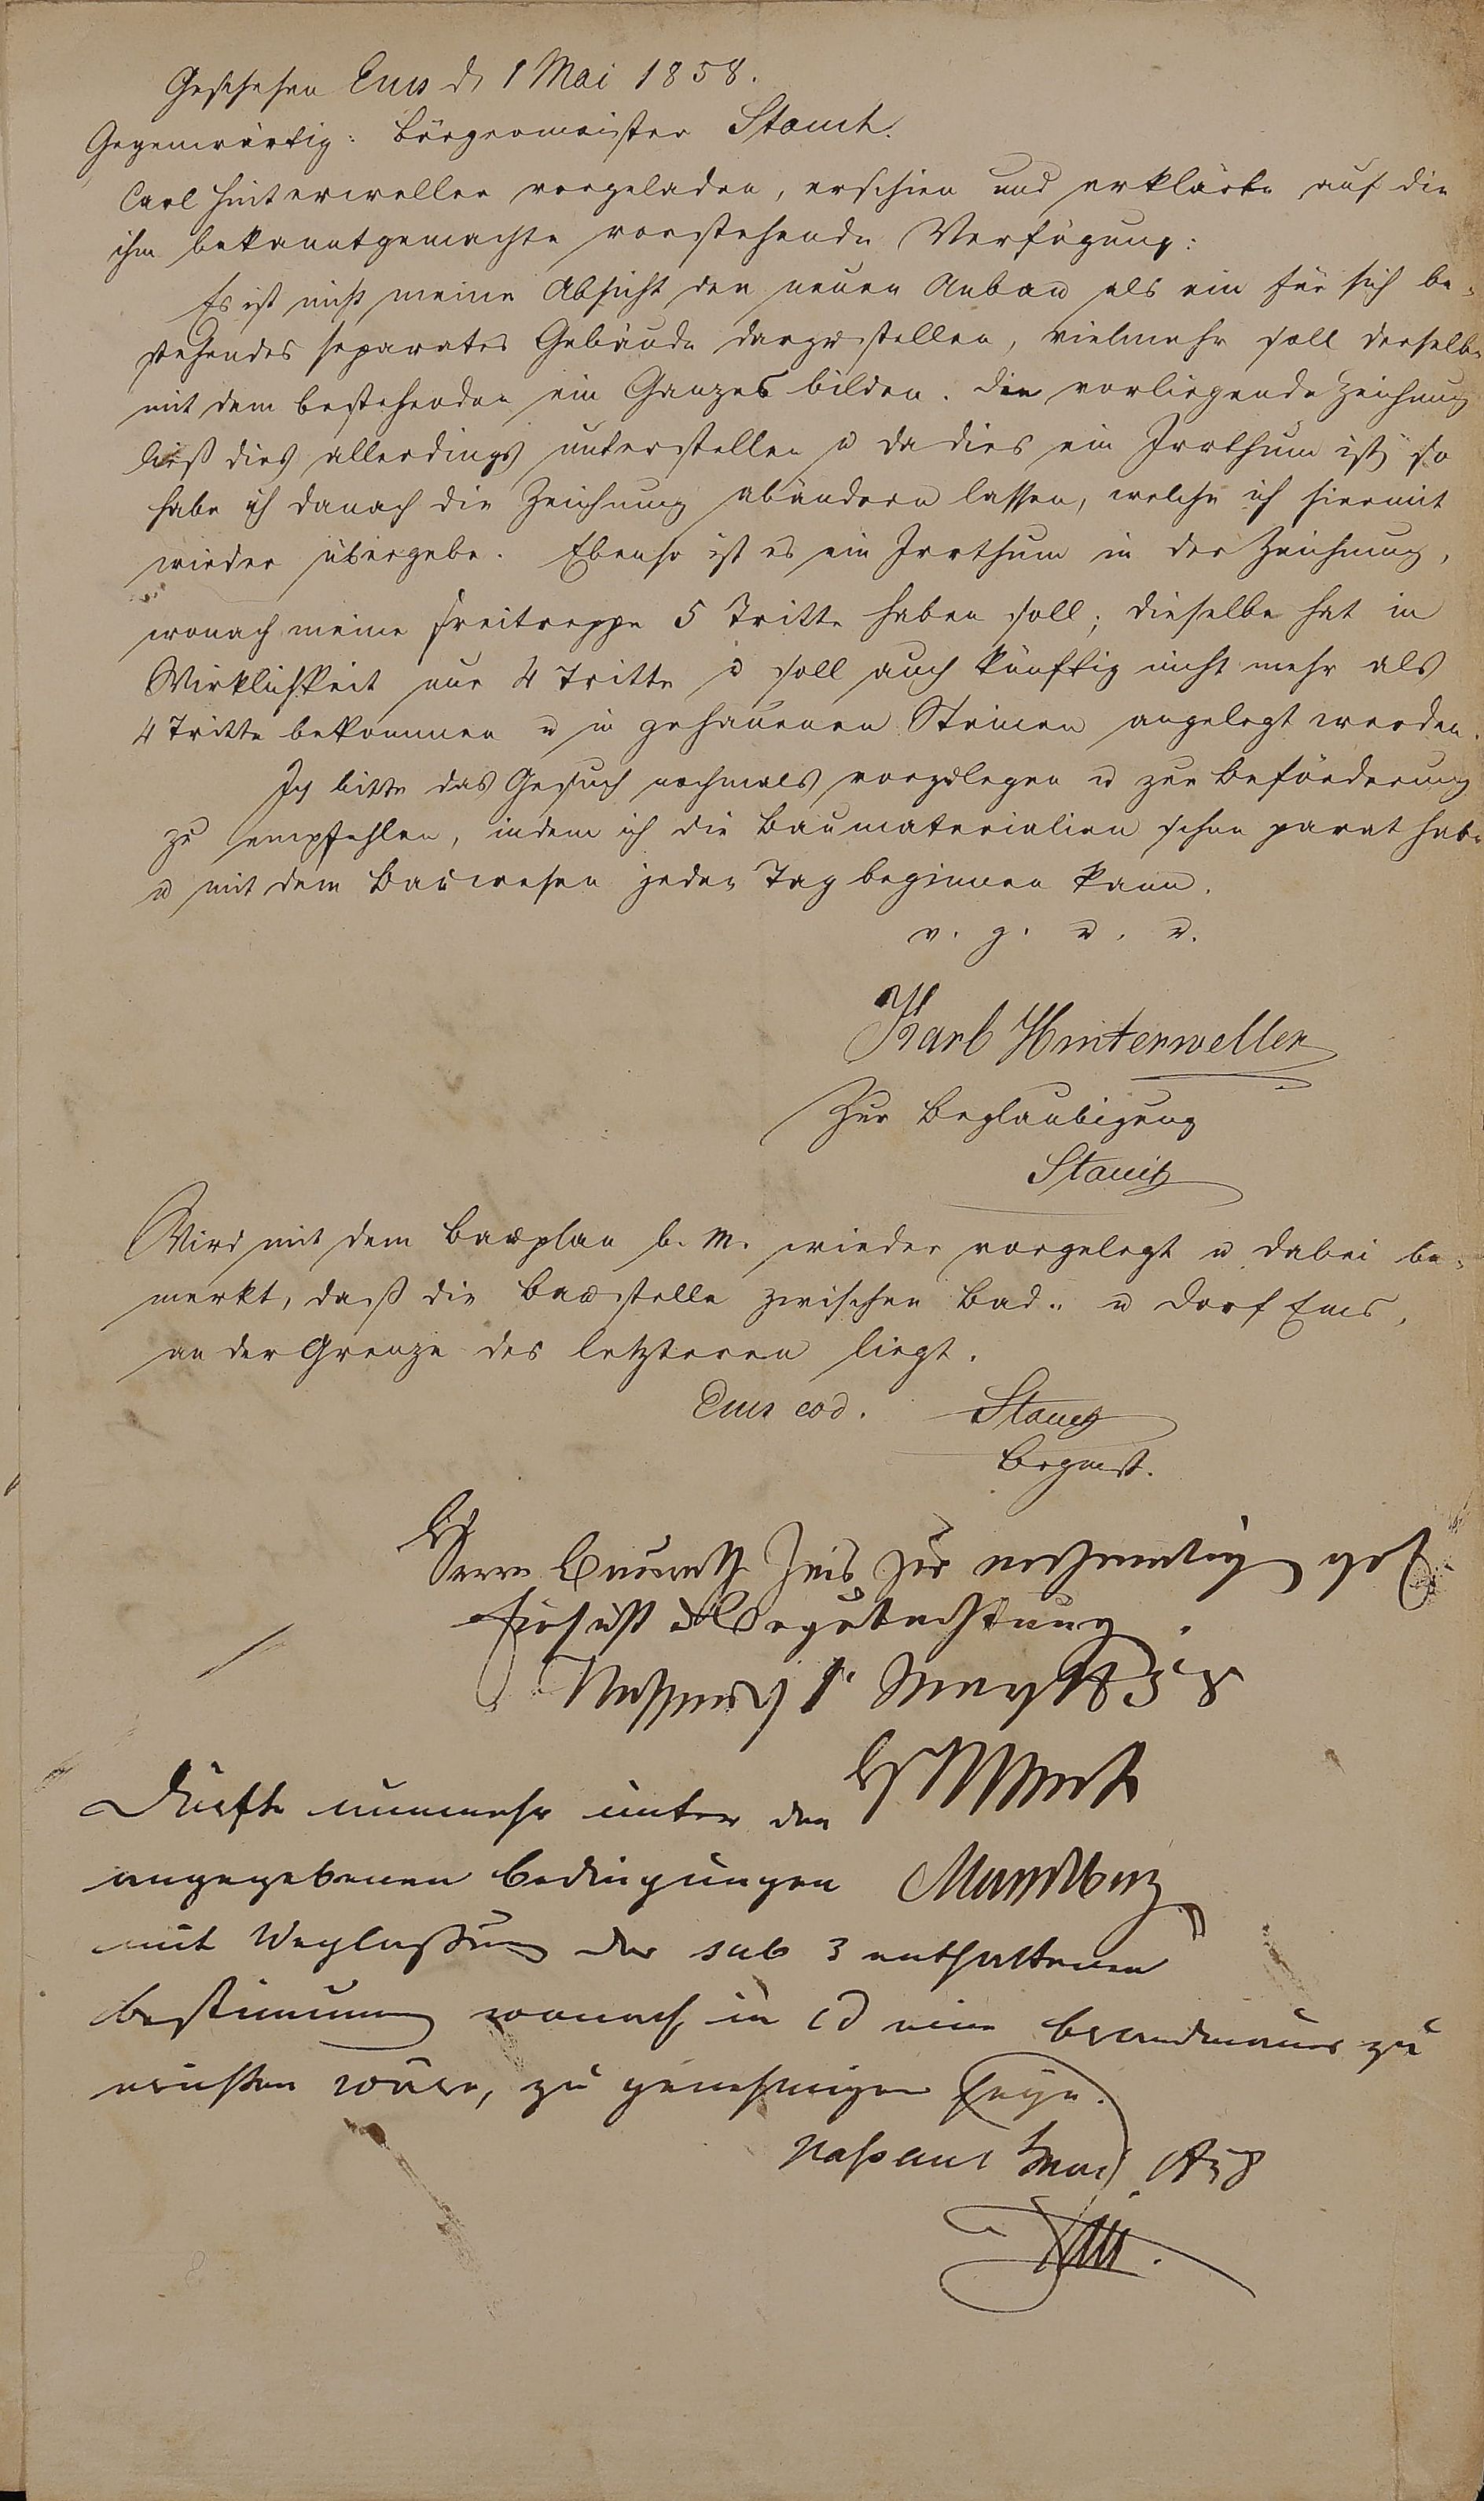 Geschehen Ems d. 1 Mai 1858.
Gegenwärtig: Bürgermeister Stauch.
Carl Hinterweller vorgeladen, erschien und erklärte auf die
ihm bekanntgemachte vorstehende Verfügung:
Es ist nicht meine Absicht den neuen Anbau als ein für sich be-
stehendes separates Gebäude darzustellen, vielmehr soll derselbe
mit dem bestehenden ein Ganzes bilden. Die vorliegende Zeichnung
ließ dies allerdings unterstellen u da dies ein Irrthum ist, so
habe ich danach die Zeichnung abändern lassen, welche ich hiermit
wieder übergebe. Ebenso ist es ein Irrthum in der Zeichnung,
wonach meine Freitreppe 5 Tritte haben soll; dieselbe hat in
Wirklichkeit nur 4 Tritte u soll auch künftig nicht mehr als
4 Tritte bekommen u in gehauenen Steinen angelegt werden.
Ich bitte das Gesuch nochmals vorzulegen u zur Beförderung
zu empfehlen, indem ich die Baumaterialien schon parat habe
u mit dem Bauwesen jeden Tag beginnen kann.
v. g. u. u.
Karl Hinterweller
Zur Beglaubigung
Stauch
Wird mit dem Bauplan b. M. wieder vorgelegt u dabei be-
merkt, daß die Baustelle zwischen Bad- u Dorf Ems,
an der Grenze des letzteren liegt.
Ems eod. Stauch
Brgmst.
Herrn Baurath Zais zur nochmaligen gef.
Einsicht u Begutachtung.
Nassau 1. May 1858
Dürfte nunmehr unter den
angegebenen Bedingungen
mit Weglassung der sub 3 enthaltenen
Bestimmung wonach in cd eine Brandmauer zu
errichten wäre, zu genehmigen seyn.
Nassau Mai 1858
Zais.